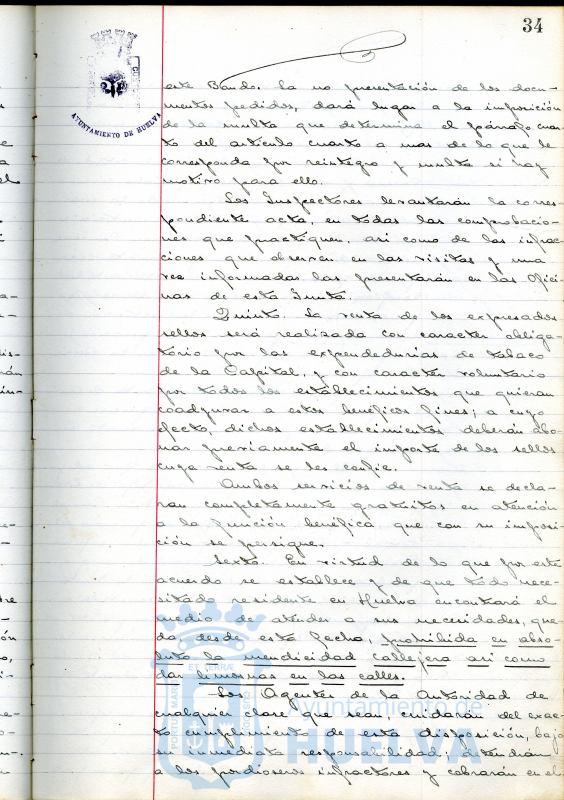 34
AYUNTAMIENTO DE HUELVA
este Bando. La no presentación de los docu-
mentos pedidos, dará lugar a la imposición
de la multa que determina el párrafo cuar-
to del artículo cuarto a mas de lo que le
corresponda por reintegro y multa si hay
motivo para ello.
Los Inspectores levantarán la corres-
pondiente acta, en todas las comprobacio-
nes que practiquen, asi como de las infrac-
ciones que observen en las visitas y una
vez informadas las presentarán en las Ofici-
nas de esta Junta.
Quinto. La venta de los expresados
sellos será realizada con caracter obliga-
tório por las expendedurias de tabaco
de la Capital, y con carácter voluntario
por todos los establecimientos que quieran
coadyuvar a estos benéficos fines; a cuyo
efecto, dichos establecimientos deberán abo-
nar previamente el importe de los sellos
cuya venta se les confie.
Ambos servicios de venta se decla-
ran completamente gratuitos en atención
a la función benéfica que con su imposi-
ción se persigue.
Sexto. En virtud de lo que por este
acuerdo se establece y de que todo nece-
sitado residente en Huelva encontrará el
medio de atender a sus necesidades, que-
da, desde esta fecha, prohibida en abso-
luto la mendicidad callejera asi como
dar limosnas en las calles.
Los Agentes de la Autoridad de
cualquier clase que sean, cuidarán del exac-
to cumplimiento de esta disposición, bajo
su inmediata responsabilidad; detendrán
a los pordioseros infractores y cobrarán en el
Ayuntamiento de
HUELVA